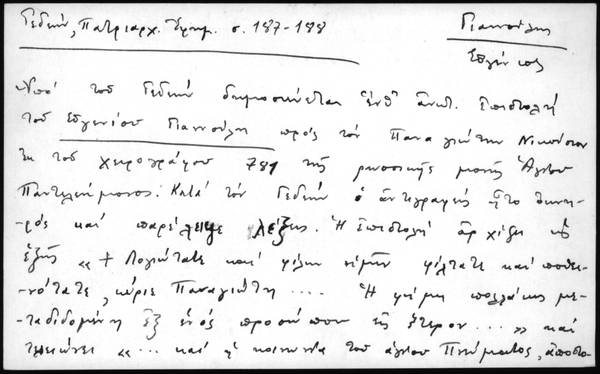 Γεδεών, Πατριαρχ. Ἐφημ. σ. 187-188
Γιαννούλης
Εὐγένιος
Ὑπό τοῦ Γεδεών δημοσιεύεται ἐνθ' ἀνωτ. Ἐπιστολή
τοῦ Εὐγενίου Γιαννούλη πρός τόν Παναγιώτην Νικούσιον
ἐκ τοῦ χειρογράφου 781 τῆς ρωσσικῆς μονῆς Ἁγίου
Παντελεήμονος. Κατά τόν Γεδεών ὁ ἀντιγραφεύς ἦτο
-ρός καί παρέλειψε λέξεις. Ἡ Ἐπιστολή ἀρχίζει ὡς
ἑξῆς « + Λογιώτατε καί φίλων ἡμῖν φίλτατε καί ποθει-
-νότατε, κύριε Παναγιώτη .... Ἡ φήμη πολλάκις με-
-ταδιδομένη ἐξ ἑνός προσώπου εἰς ἕτερον ... » καί
τελειώνει « ... καί ἡ κοινωνία τοῦ ἁγίου Πνεύματος, ἀποστο-